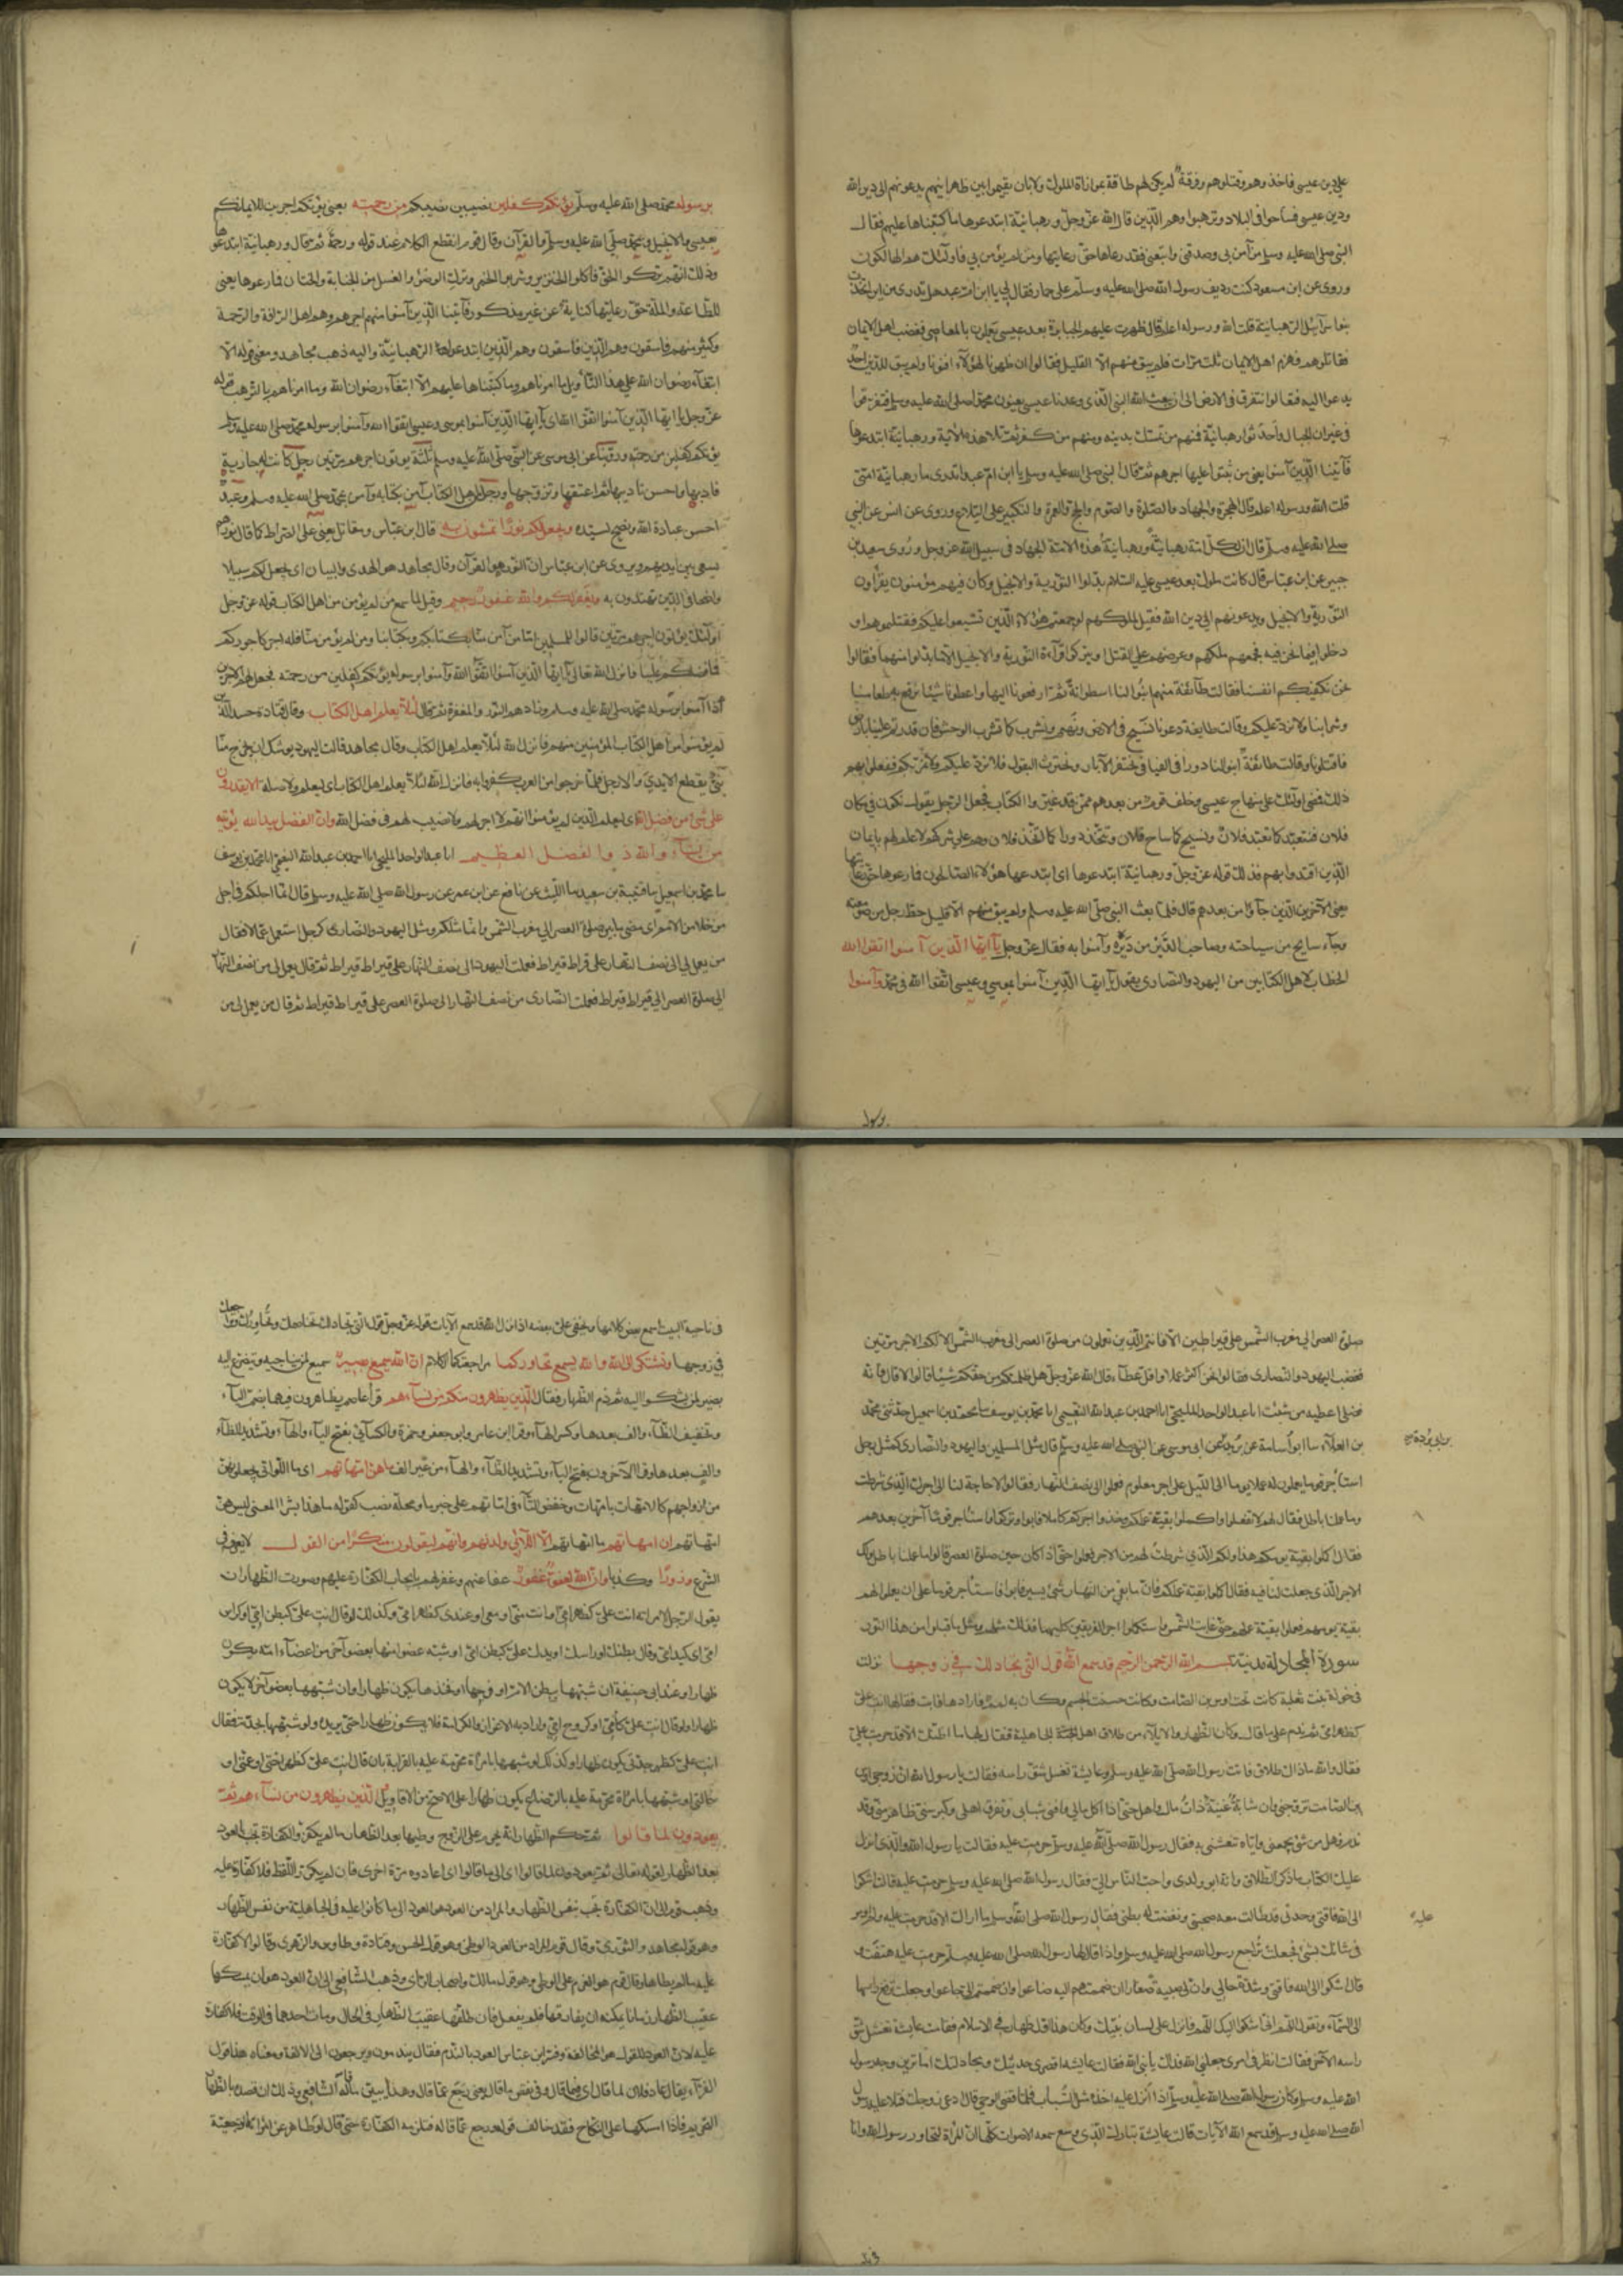 علي دين عيسى فاخذوهم وقتلوهم وفرقة لم يكن لهم طاقة بموازاة الملوك ولا بان يقيموا بين ظهرانيهم يدعونهم الى دين الله
ودين عيسى فساحوا في البلاد وترهبوا وهم الذين قال الله عز وجل ورهبانية ابتدعوها ما كتبناها عليهم فقال
النبي صلى الله عليه وسلم من آمن بي وصدقني واتبعني فقد رعاها حق رعايتها ومن لم يؤمن بي فاولئك هم الهالكون
وروى عن ابن مسعود كنت رديف رسول الله صلى الله عليه وسلم على حمار فقال لي يا ابن ام عبد هل تدري من اين اتخذت
بنوا سرآئيل الرهبانية قلت الله ورسوله اعلم قال ظهرت عليهم الجبابرة بعد عيسى يعملون بالمعاصي فغضب اهل الايمان
فقاتلوهم فهزم اهل الايمان ثلث مرات فلم يبق منهم الا القليل فقالوا ان ظهرنا لهؤلآء افنونا ولم يبق للدين احد
يدعوا اليه فقالوا نتفرق في الارض الى ان يبعث الله النبي الذي وعدنا عيسى يعنون محمدا صلى الله عليه وسلم فتفرقوا
في غيران الجبال واحدثوا رهبانية فمنهم من تمسك بدينه ومنهم من كفر ثم تلا هذه الآية ورهبانية ابتدعوها
فآتينا الذين آمنوا يعني من ثبتوا عليها اجرهم ثم قال النبي صلى الله عليه وسلم يا ابن ام عبد اتدري ما رهبانية امتي
قلت الله ورسوله اعلم قال الهجرة والجهاد والصلوة والصوم والحج والعمرة والتكبير على التلاع وروى عن انس عن النبي
صلى الله عليه وسلم قال ان لكل امة رهبانية ورهبانية هذه الامة الجهاد في سبيل الله عز وجل وروى سعيد بن
جبير عن ابن عباس قال كانت ملوك بعد عيسى عليه السلام بدلوا التورية والانجيل وكان فيهم مؤمنون يقرأون
التورية والانجيل ويدعونهم الى دين الله فقيل لملوكهم لو جمعتم هؤلاء الذين شقوا عليكم فقتلتموهم او
دخلوا فيما نحن فيه فجمعهم ملكهم وعرض عليهم القتل او يتركوا قرآءة التورية والانجيل الا ما بدلوا منهما فقالوا
نحن نكفيكم انفسنا فقالت طآئفة منهم ابنوا لنا اسطوانة ثم ارفعونا اليها واعطونا شيئا نرفع به طعامنا
وشرابنا ولا نرد عليكم وقالت طايفة دعونا نسيح في الارض ونهيم ونشرب كما تشرب الوحش فان قدرتم علينا بارض
فاقتلونا وقالت طائفة ابنوا لنا دورا في الفيافي نحتفر الآبار ونحترث البقول فلا نرد عليكم ولا نمر بكم ففعلوا بهم
ذلك فمضى اولئك على منهاج عيسى وخلف قوم من بعدهم ممن قد غيروا الكتاب فجعل الرجل يقول نكون في مكان
فلان فنتعبد كما تعبد فلان ونسيح كما ساح فلان ونتخذ دورا كما اتخذ فلان وهم على شركهم لا علم لهم بايمان
الذين اقتدوا بهم فذلك قوله عز وجل ورهبانية ابتدعوها اى ابتدعها هؤلاء الصالحون فما رعوها حق رعايتها
يعني الآخرين الذين جآؤا من بعدهم قال فلما بعث النبي صلى الله عليه وسلم ولم يبق منهم الا قليل حط رجل من صومعته
وجآء سايح من سياحته وصاحب الدير من ديره وآمنوا به فقال عز وجل يآ ايها الذين آمنوا اتقوا الله
الخطاب لاهل الكتابين من اليهود والنصارى يقول يآ ايها الذين آمنوا بموسى وعيسى اتقوا الله في محمد وآمنوا
برسوله
برسوله محمد صلى الله عليه وسلم يؤتكم كفلين نصيبين من رحمته يعني يؤتكم اجرين لايمانكم
بعيسى والانجيل وبمحمد صلى الله عليه وسلم والقرآن وقال قوم انقطع الكلام عند قوله ورحمة ثم قال ورهبانية ابتدعوها
وذلك انهم تركوا الحق فاكلوا الخنزير وشربوا الخمر وتركوا الوضؤ والغسل من الجنابة والختان فما رعوها يعني
الطاعة والملة حق رعايتها كناية عن غير مذكور فآتينا الذين آمنوا منهم اجرهم وهم اهل الرافة والرحمة
وكثير منهم فاسقون وهم الذين ابتدعوا الرهبانية واليه ذهب مجاهد ومعنى قوله الا
ابتغآء رضوان الله على هذا التأويل ما امرناهم وما كتبناها عليهم الا ابتغآء رضوان الله وما امرناهم بالترهب قوله
عز وجل يا ايها الذين آمنوا اتقوا الله اى يآ ايها الذين آمنوا بموسى وعيسى اتقوا الله وآمنوا برسوله محمد صلى الله عليه وسلم
يؤتكم كفلين من رحمته وروينا عن ابي موسى عن النبي صلى الله عليه وسلم ثلثة يؤتون اجرهم مرتين رجل كانت له جارية
فادبها واحسن تاديبها ثم اعتقها وتزوجها ورجل من اهل الكتاب آمن بكتابه وآمن بمحمد صلى الله عليه وسلم وعبد
احسن عبادة الله ونصح لسيده ويجعل لكم نورا تمشون به قال ابن عباس ومقاتل يعني على الصراط كما قال نورهم
يسعى بين ايديهم ويروى عن ابن عباس ان النور هو القرآن وقال مجاهد هو الهدى والبيان اى يجعل لكم سبيلا
واضحا في الدين تهتدون به ويغفر لكم والله غفور رحيم وقيل لما سمع من لم يؤمن من اهل الكتاب قوله عز وجل
اولئك يؤتون اجرهم مرتين قالوا للمسلمين اما من آمن منا بكتابكم وبكتابنا ومن لم يؤمن منا فله اجر كاجوركم
فما فضلكم علينا فانزل الله تعالى يآ ايها الذين آمنوا اتقوا الله وآمنوا برسوله يؤتكم كفلين من رحمته فجعل لهم الاجرين
اذا آمنوا برسوله محمد صلى الله عليه وسلم وزادهم النور والمغفرة ثم قال لئلا يعلم اهل الكتاب وقال قتادة حسد الذين
لم يؤمنوا من اهل الكتاب المؤمنين منهم فانزل الله لئلا يعلم اهل الكتاب وقال مجاهد قالت اليهود يوشك ان يخرج منا
نبي يقطع الايدي والارجل فلما خرج من العرب كفروا به فانزل الله لئلا يعلم اهل الكتاب اى ليعلم ولا صلة الا يقدرون
على شئ من فضل الله اى ليعلم الذين لم يؤمنوا انهم لا اجر لهم ولا نصيب لهم في فضل الله وان الفضل بيد الله يؤتيه
من يشآء والله ذو الفضل العظيم انا عبد الواحد المليحي انا احمد بن عبد الله النعيمي انا محمد بن يوسف
نا محمد بن اسمعيل نا قتيبة بن سعيد نا الليث عن نافع عن ابن عمر عن رسول الله صلى الله عليه وسلم قال انما اجلكم في اجل
من خلا من الامم كما بين صلوة العصر الى مغرب الشمس وانما مثلكم ومثل اليهود والنصارى كرجل استعمل عمالا فقال
من يعمل لي الى نصف النهار على قيراط قيراط فعملت اليهود الى نصف النهار على قيراط قيراط ثم قال من يعمل لي من نصف النهار
الى صلوة العصر على قيراط قيراط فعملت النصارى من نصف النهار الى صلوة العصر على قيراط قيراط ثم قال من يعمل لي من
صلوة العصر الى مغرب الشمس على قيراطين الا فانتم الذين تعملون من صلوة العصر الى مغرب الشمس الا لكم الاجر مرتين
فغضب اليهود والنصارى فقالوا نحن اكثر عملا واقل عطآء قال الله عز وجل هل ظلمتكم من حقكم شيئا قالوا لا قال فانه
فضلي اعطيه من شئت انا عبد الواحد المليحي انا احمد بن عبد الله النعيمي انا محمد بن يوسف نا محمد بن اسمعيل حدثني محمد
بن العلآء نا ابو اسامة عن بريد عن ابي موسى عن النبي صلى الله عليه وسلم قال مثل المسلمين واليهود والنصارى كمثل رجل
بن ابي بردة
استأجر قوما يعملون له عملا يوما الى الليل على اجر معلوم فعملوا الى نصف النهار فقالوا لا حاجة لنا الى اجرك الذي شرطت
وما عملنا باطل فقال لهم لا تفعلوا واكملوا بقية عملكم وخذوا اجركم كاملا فابوا وتركوا واستأجر قوما آخرين بعدهم
فقال اكملوا بقية يومكم هذا ولكم الذي شرطت لهم من الاجر فعملوا حتى اذا كان حين صلوة العصر قالوا ما عملنا باطل ولك
الاجر الذي جعلت لنا فيه فقال اكملوا بقية عملكم فان ما بقي من النهار شئ يسير فابوا فاستأجر قوما على ان يعملوا لهم
بقية يومهم فعملوا بقية يومهم حتى غابت الشمس واستكملوا اجر الفريقين كليهما فذلك مثلهم ومثل ما قبلوا من هذا النور
سورة المجادلة مدنية بسم الله الرحمن الرحيم قد سمع الله قول التي تجادلك في زوجها نزلت
في خولة بنت ثعلبة كانت تحت اوس بن الصامت وكانت حسنة الجسم وكان به لمم فارادها فابت فقال لها انت علي
كظهر امي ثم ندم على ما قال وكان الظهار والايلآء من طلاق اهل الجاهلية فقال لها ما اظنك الا قد حرمت علي
فقالت والله ما ذاك طلاق فاتت رسول الله صلى الله عليه وسلم وعايشة تغسل شق راسه فقالت يا رسول الله ان زوجي اوس
بن الصامت تزوجني وانا شابة غنية ذات مال واهل حتى اذا اكل مالي وافنى شبابي وتفرق اهلي وكبر سني ظاهر مني وقد
ندم فهل من شئ يجمعني واياه تنعشني به فقال رسول الله صلى الله عليه وسلم حرمت عليه فقالت يا رسول الله والذي انزل
عليك الكتاب ما ذكر الطلاق وانه ابو ولدي واحب الناس الي فقال رسول الله صلى الله عليه وسلم حرمت عليه فقالت اشكوا
الى الله فاقتي ووحدتي قد طالت معه صحبتي ونفضت له بطني فقال رسول الله صلى الله عليه وسلم ما اراك الا قد حرمت عليه ولم اومر
عليه
في شانك بشئ فجعلت تراجع رسول الله صلى الله عليه وسلم واذا قال لها رسول الله صلى الله عليه وسلم حرمت عليه هتفت و
قالت اشكوا الى الله فاقتي وشدة حالي وان لي صبية صغارا ان ضممتهم اليه ضاعوا وان ضممتهم الي جاعوا وجعلت ترفع راسها
الى السمآء وتقول اللهم اني اشكوا اليك اللهم فانزل على لسان نبيك وكان هذا اول ظهار في الاسلام فقامت عايشة تغسل شق
راسه الآخر فقالت انظر في امري جعلني الله فداك يا نبي الله فقالت عايشة اقصري حديثك ومجادلتك اما ترين وجه رسول
الله صلى الله عليه وسلم وكان رسول الله صلى الله عليه وسلم اذا انزل عليه اخذه مثل السبات فلما قضى الوحي قال ادعي زوجك فتلا عليه رسول
الله صلى الله عليه وسلم قد سمع الله الآيات قالت عايشة تبارك الذي وسع سمعه الاصوات كلها ان المرأة لتحاور رسول الله وانا
في نا
في ناحية البيت اسمع بعض كلامها ويخفى علي بعضه اذ انزل الله قد سمع الآيات قوله عز وجل قول التي تجادلك تخاصمك وتحاورك وتراجعك
في زوجها وتشتكي الى الله والله يسمع تحاوركما مراجعتكما الكلام ان الله سميع بصير سميع لمن يناجيه ويتضرع اليه
بصير لمن يشكوا اليه ثم ذم الظهار فقال الذين يظاهرون منكم من نسآءهم قرأ عاصم يظاهرون فيهما بضم اليآء
وتخفيف الظآء والف بعدها وكسر الهآء وقرا ابن عامر وابو جعفر وحمزة والكسآئي بفتح اليآء والهآء وتشديد الظآء
والف بعدها وقرا الآخرون بفتح اليآء وتشديد الظآء والهآء من غير الف ما هن امهاتهم اى ما اللواتي يجعلونهن
من ازواجهم كالامهات بامهات وخفض التآء في امهاتهم على خبر ما ومحله نصب كقوله ما هذا بشرا المعنى ليس هن
امهاتهم ان امهاتهم ما امهاتهم الا اللائي ولدنهم وانهم ليقولون منكرا من القول لا يعرف في
الشرع وزورا وكذبا وان الله لعفو غفور عفا عنهم وغفر لهم بايجاب الكفارة عليهم وصورة الظهار ان
يقول الرجل لامراته انت علي كظهر امي او انت مني او معي او عندي كظهر امي وكذلك لو قال انت علي كبطن امي او كراس
امي او كيد امي او قال بطنك او راسك او يدك علي كبطن امي او شبه عضوا منها بعضو آخر من اعضآء امه يكون
ظهارا وعند ابي حنيفة ان شبهها ببطن الام او فرجها او فخذها يكون ظهارا وان شبهها بعضو آخر لا يكون
ظهارا ولو قال انت علي كامي او كروح امي واراد به الاعزاز والكرامة فلا يكون ظهارا حتى يريده ولو شبهها بجدته فقال
انت علي كظهر جدتي يكون ظهارا وكذلك لو شبهها بامرأة محرمة عليه بالقرابة بان قال انت علي كظهر اختي او عمتي او
خالتي او شبهها بامرأة محرمة عليه بالرضاع يكون ظهارا على الاصح من الاقاويل والذين يظاهرون من نسآءهم ثم
يعودون لما قالوا ثم حكم الظهار انه يحرم على الزوج وطيها بعد الظهار ما لم يكفر والكفارة تجب بالعود
بعد الظهار لقوله تعالى ثم يعودون لما قالوا اى الى ما قالوا اى اعادوه مرة اخرى فان لم يكرر اللفظ فلا كفارة عليه
وذهب قوم الى ان الكفارة تجب بنفس الظهار والمراد من العود هو العود الى ما كانوا عليه في الجاهلية من نفس الظهار
وهو قول مجاهد والثوري وقال قوم المراد من العود الوطئ وهو قول الحسن وقتادة وطاوس والزهري وقالوا لا كفارة
عليه ما لم يطاها وقال قوم هو العزم على الوطئ وهو قول مالك واصحاب الراى وذهب الشافعي الى ان العود هو ان يمسكها
عقيب الظهار زمانا يمكنه ان يفارقها فلم يفعل فان طلقها عقيب الظهار في الحال او مات احدهما في الوقت فلا كفارة
عليه لان العود للقول هو المخالفة وفسر ابن عباس العود بالندم فقال يندمون ويرجعون الى الالفة ومعناه هذا قول
الفرآء يقال عاد فلان لما قال اى فيما قال وفي نقض ما قال يعني رجع عما قال وهذا يبين ما قاله الشافعي وذلك ان قصده بالظهار
التحريم فاذا امسكها على النكاح فقد خالف قوله ورجع عما قاله فتلزمه الكفارة حتى قال لو ظاهر عن امرأته الرجعية